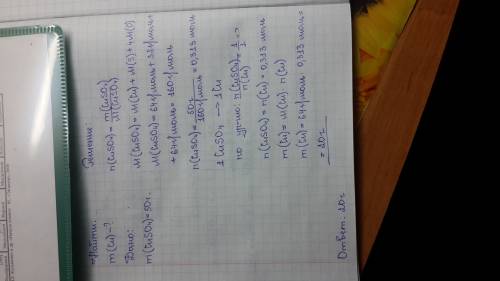 Найти:
m(Cu)-?
Дано:
m(CuSO₄)=50г.
Решение:
n(CuSO₄) = m(CuSO₄) / M(CuSO₄)
M(CuSO₄) = M(Cu) + M(S) + 4M(O)
M(CuSO₄) = 64г/моль + 32г/моль +
+ 64г/моль = 160г/моль
n(CuSO₄) = 50г / 160г/моль = 0,313 моль
1 CuSO₄ → 1 Cu
по n(CuSO₄) / n(Cu) = 1/1 =>
n(CuSO₄) = n(Cu) = 0,313 моль
m(Cu) = M(Cu) · n(Cu)
m(Cu) = 64г/моль · 0,313 моль
= 20г
Ответ: 20г